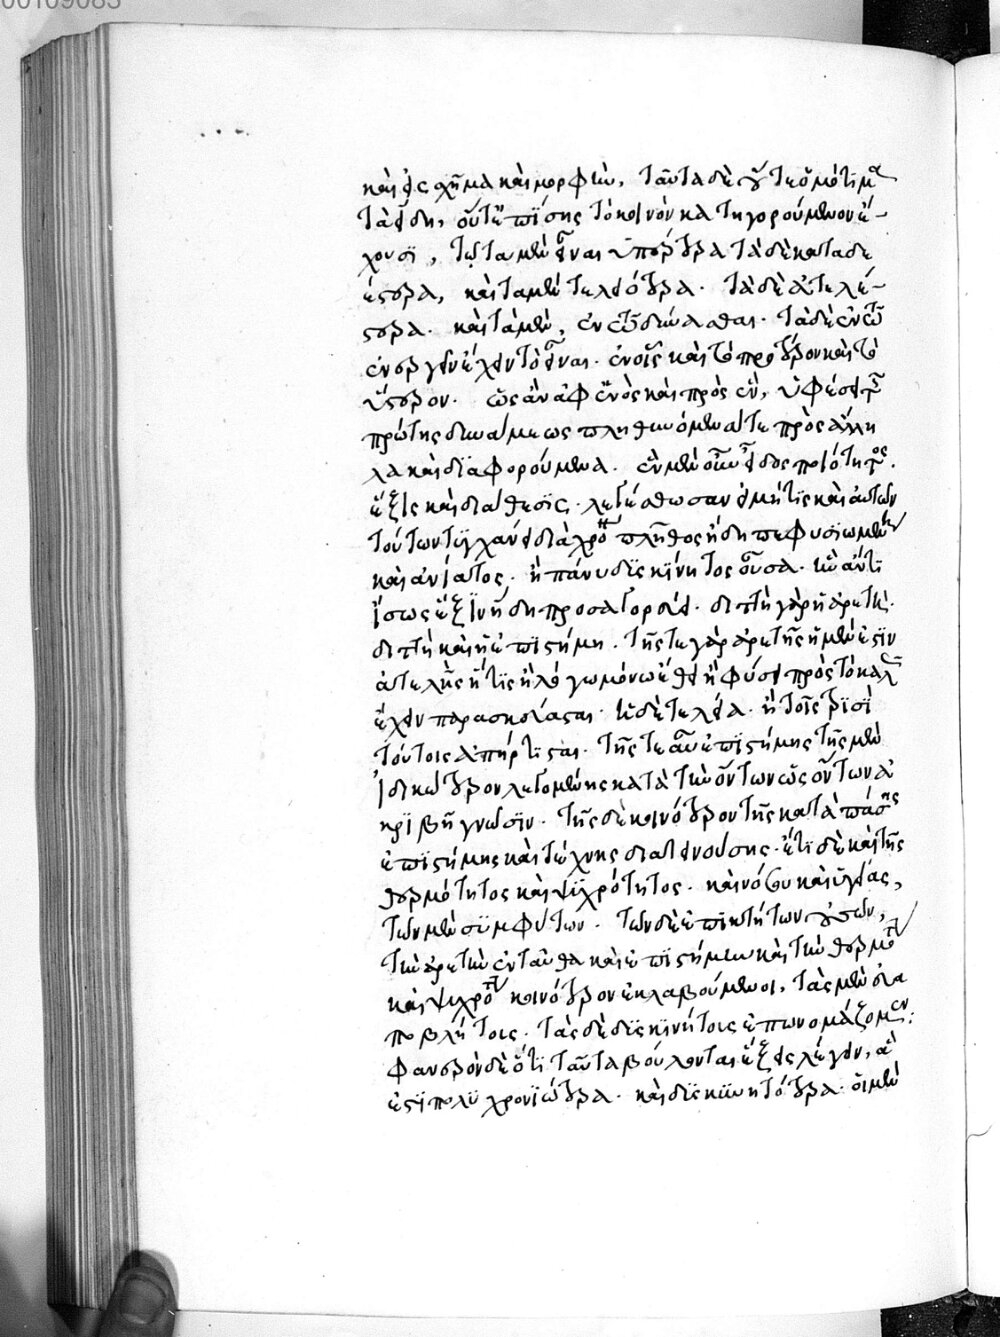 00109083
καὶ εἰς σχῆμα καὶ μορφήν. ταῦτα δὲ οὔτε ὁμότιμα
τὰ εἴδη, οὔτε ἐπίσης τὸ κοινὸν κατηγορούμενον ἔ-
χουσι, τῷ τὰ μὲν εἶναι ὑπέρτερα τὰ δὲ καταδε
έστερα, καὶ τὰ μὲν τελειότερα. τὰ δὲ ἀτελέ-
στερα. καὶ τὰ μὲν, ἐν τῷ δύνασθαι. τὰ δὲ ἐν τῷ
ἐνεργεῖν ἔχειν τὸ εἶναι. ἐν οἷς καὶ τὸ πρότερον καὶ τὸ
ὕστερον. ὡς ἂν ἀφ' ἑνὸς καὶ πρὸς ἓν, ὑφέσει τῆς
πρώτης δυνάμεως πληθυνόμενά τε πρὸς ἄλλη
λα καὶ διαφορούμενα. ἓν μὲν οὖν εἶδος ποιότητος.
ἕξις καὶ διάθεσις. λεγέσθωσαν εἰ μήτις καὶ αὐτῶν
τούτων τυγχάνει διὰ χρόνου πλῆθος ἤδη πεφυσιωμένη
καὶ ἀνίατος. ἢ πάνυ δυσκίνητος οὖσα. ἣν ἄν τις
ἴσως ἕξιν ἤδη προσαγορεύει. διττὴ γὰρ ἡ ἀρετὴ.
διττὴ καὶ ἡ ἐπιστήμη. τῆς τε γὰρ ἀρετῆς ἡ μὲν ἐστὶν
ἀτελὴς ἥτις ἢ λόγῳ μόνῳ ἔθει ἢ φύσει πρὸς τὸ καλῶς
ἔχειν παρασκευάσαι. ἡ δὲ τελεία. ἣ τοῖς τρισὶ
τούτοις ἀπήρτισται. τῆς τε αὖ ἐπιστήμης τῆς μὲν
ἰδικώτερον λεγομένης κατὰ τὴν ὄντων ὡς ὄντων ἀ
κριβῆ γνῶσιν. τῆς δὲ κοινότερον τῆς κατὰ πάσης
ἐπιστήμης καὶ τέχνης διατεινούσης. ἔτι δὲ καὶ τῆς
θερμότητος καὶ ψυχρότητος. καὶ νόσου καὶ ὑγείας,
τῶν μὲν συμφύτων. τῶν δὲ ἐπικτήτων οὐσῶν,
τὴν ἀρετὴν ἐνταῦθα καὶ ἐπιστήμην καὶ τὴν θερμότητα
καὶ ψυχρότητα κοινότερον ἐκλαβούμενοι, τὰς μὲν εὐα
ποβλήτοις. τὰς δὲ δυσκινήτοις ἐπωνομάζομεν:
φανερὸν δὲ ὅτι ταῦτα βούλονται ἕξεις λέγειν, ἅ
ἐστι πολυχρονιώτερα. καὶ δυσκινητότερα. οἱ μὲν